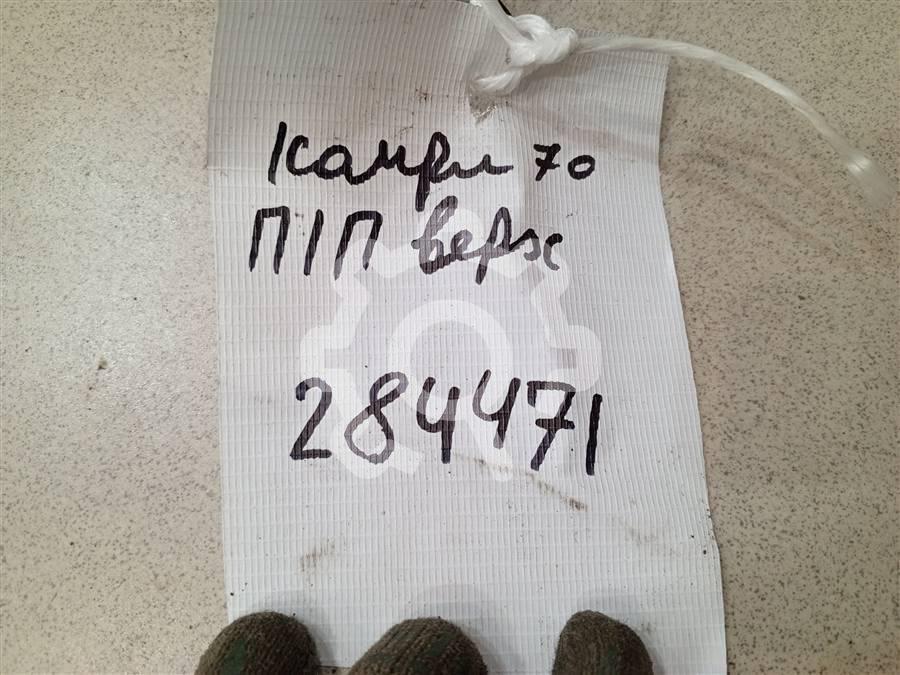 Камри 70
П/П верх
284471